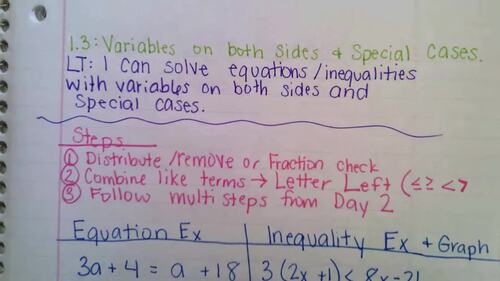 1.3: Variables on both sides & Special Cases.
LT: I can solve equations/inequalities
with variables on both sides and
Special cases.
Steps
① Distribute/remove or Fraction check
② Combine like terms → Letter Left (≤ ≥ < >
③ Follow multi steps from Day 2
Equation Ex | Inequality Ex + Graph
3a+4 = a +18 | 3(2x+1) < 8x-21